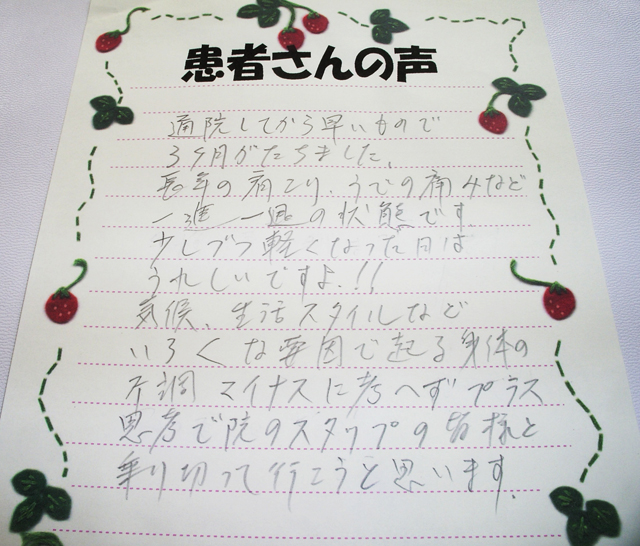 患者さんの声
通院してから早いもので
3ヶ月がたちました、
長年の肩こり、うでの痛みなど
一進一退の状態です
少しづつ軽くなった日は
うれしいですよ、!!
気候、生活スタイルなど
いろくな要因で起る身体の
不調 マイナスに考へずプラス
思考で院のスタッフの皆様と
乗り切って行こうと思います。